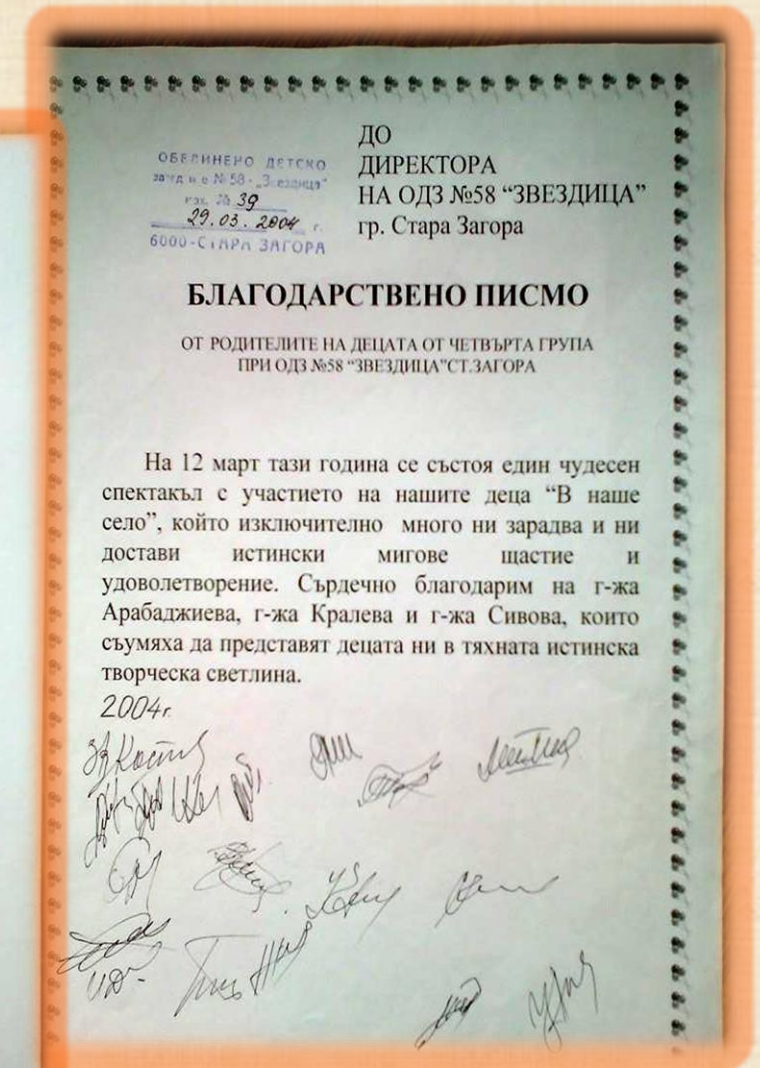 ДО
ДИРЕКТОРА
НА ОДЗ №58 “ЗВЕЗДИЦА”
гр. Стара Загора
ОБЕДИНЕНО ДЕТСКО
заведение №58 - „Звездица“
изх. № 39
29.03.2004 г.
6000-СТАРА ЗАГОРА
БЛАГОДАРСТВЕНО ПИСМО
ОТ РОДИТЕЛИТЕ НА ДЕЦАТА ОТ ЧЕТВЪРТА ГРУПА
ПРИ ОДЗ №58 “ЗВЕЗДИЦА”СТ.ЗАГОРА
На 12 март тази година се състоя един чудесен
спектакъл с участието на нашите деца “В наше
село”, който изключително много ни зарадва и ни
достави истински мигове щастие и
удоволетворение. Сърдечно благодарим на г-жа
Арабаджиева, г-жа Кралева и г-жа Сивова, които
съумяха да представят децата ни в тяхната истинска
творческа светлина.
2004г.